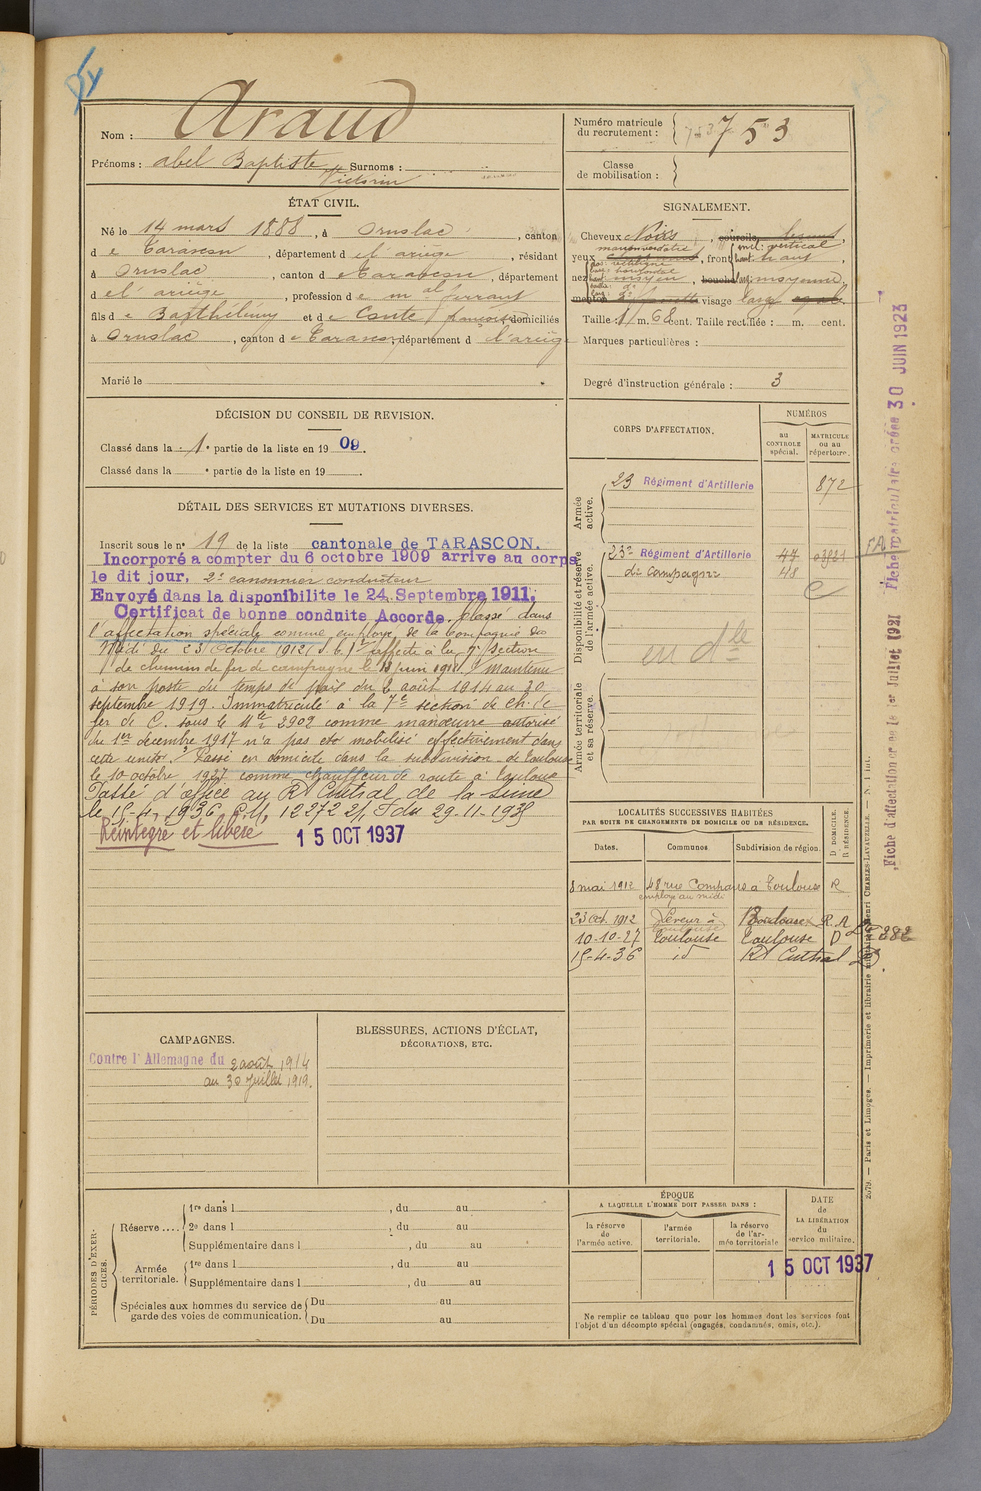 Nom : Araud
Prénoms : Abel Baptiste Surnoms :
Victorin
Numéro matricule
du recrutement : 753
Classe
de mobilisation :
ÉTAT CIVIL.
Né le 14 mars 1888, à Ornolac, canton
de Tarascon, département de l'ariège, résidant
à Ornolac, canton de Tarascon, département
de l'ariège, profession de mal ferrant
fils de Barthélémy et de Conte françoise domiciliés
à Ornolac, canton de Tarascon, département de l'ariège
Marié le
SIGNALEMENT.
Cheveux Noirs, sourcils
incl: vertical
yeux marron verdatre, front haut:
nez moyen, bouche moyenne
menton visage large
Taille : 1 m. 68 cent. Taille rectifiée : m. cent.
Marques particulières :
Degré d'instruction générale : 3
DÉCISION DU CONSEIL DE REVISION.
Classé dans la 1e partie de la liste en 1909.
Classé dans la e partie de la liste en 19 .
DÉTAIL DES SERVICES ET MUTATIONS DIVERSES.
Inscrit sous le no 19 de la liste cantonale de TARASCON.
Incorporé a compter du 6 octobre 1909 arrive au corps
le dit jour, 2e canonnier conducteur
Envoyé dans la disponibilite le 24 Septembre 1911.
Certificat de bonne conduite Accorde. Classé dans
l'affectation spéciale comme employé de la Compagnie du
Midi du 23 Octobre 1912 affecté à la 7e Section
de chemin de fer de campagne le juin 1911. Maintenu
à son poste du temps de paix du 2 août 1914 au 30
septembre 1919. Immatriculé à la 7e section de ch. de
fer de C. sous le Mle 2902 comme manœuvre autorisé
du 1er décembre 1917 n'a pas été mobilisé effectivement dans
cette unité. Passé en domicile dans la subdivision de Toulouse
le 10 octobre 1927 comme chauffeur de route à Toulouse
Passé d'office au Rt Central de la Seine
le 15-4-1936 C.M. 12272 du 29-11-1935
Réintégré et libéré 15 OCT 1937
CORPS D'AFFECTATION.
NUMÉROS
au
CONTROLE
spécial.
MATRICULE
ou au
répertoire.
Armée
active.
23 Régiment d'Artillerie 872
Disponibilité et réserve
de l'armée active.
23e Régiment d'Artillerie 47
de Campagne 48
C
en dle
Armée territoriale
et sa réserve.
LOCALITÉS SUCCESSIVES HABITÉES
PAR SUITE DE CHANGEMENTS DE DOMICILE OU DE RÉSIDENCE.
Dates. Communes Subdivision de région. D DOMICILE. R RÉSIDENCE.
8 mai 1912 48 rue Compans à Toulouse R
employé au midi
23 Oct. 1912 Bordeaux R.
10-10-27 Toulouse Toulouse D
15-4-36 id Rt Central
282
CAMPAGNES.
Contre l'Allemagne du 2 août 1914
au 30 Juillet 1919.
BLESSURES, ACTIONS D'ÉCLAT,
DÉCORATIONS, ETC.
PÉRIODES D'EXER-
CICES.
Réserve ....
1re dans l , du au
2e dans l , du au
Supplémentaire dans l , du au
Armée
territoriale.
1re dans l , du au
Supplémentaire dans l , du au
Spéciales aux hommes du service de
garde des voies de communication.
Du au
Du au
ÉPOQUE
A LAQUELLE L'HOMME DOIT PASSER DANS :
la réserve
de
l'armée active.
l'armée
territoriale.
la réserve
de l'ar-
mée territoriale
DATE
de
LA LIBÉRATION
du
service militaire.
15 OCT 1937
Ne remplir ce tableau que pour les hommes dont les services font
l'objet d'un décompte spécial (engagés, condamnés, omis, etc.).
Fiche d'affectation créée le 1er Juillet 1921 Fiche matriculaire créée 30 JUIN 1923
Paris et Limoges. — Imprimerie et librairie militaires Henri CHARLES-LAVAUZELLE. — N. 1 int.